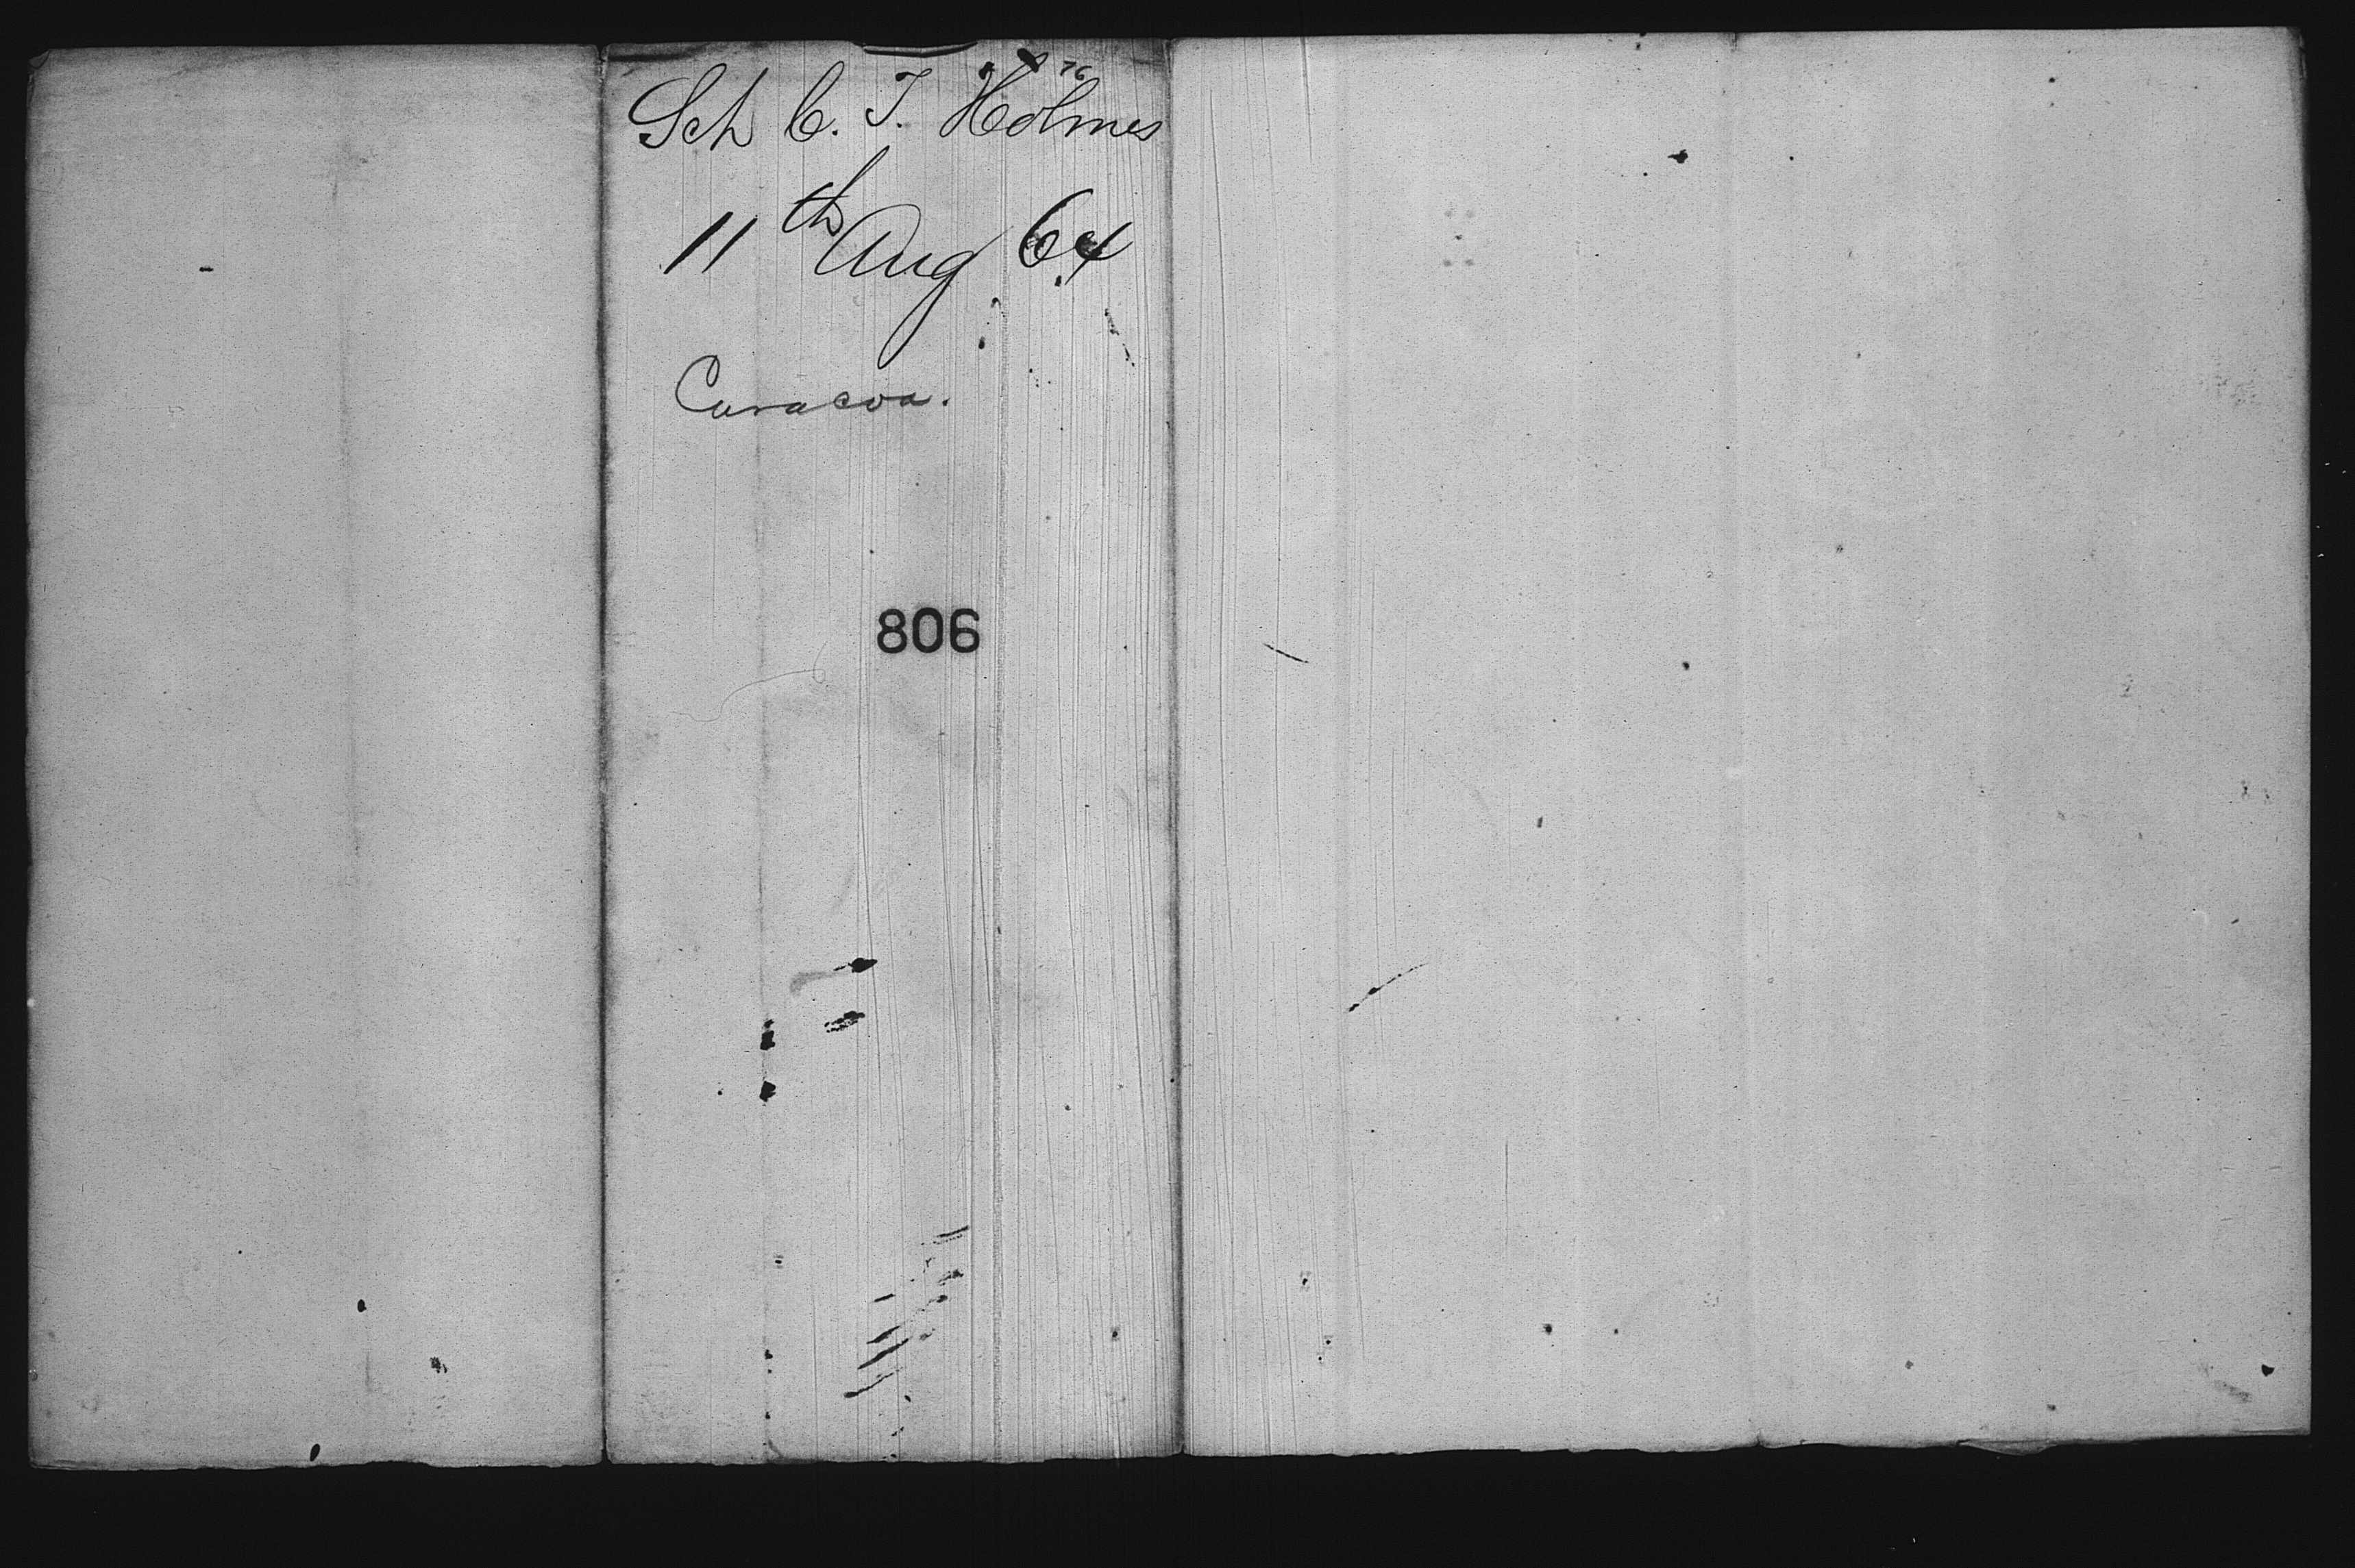 Sch C. T. Holmes
11th Aug 64
Curacoa.
806